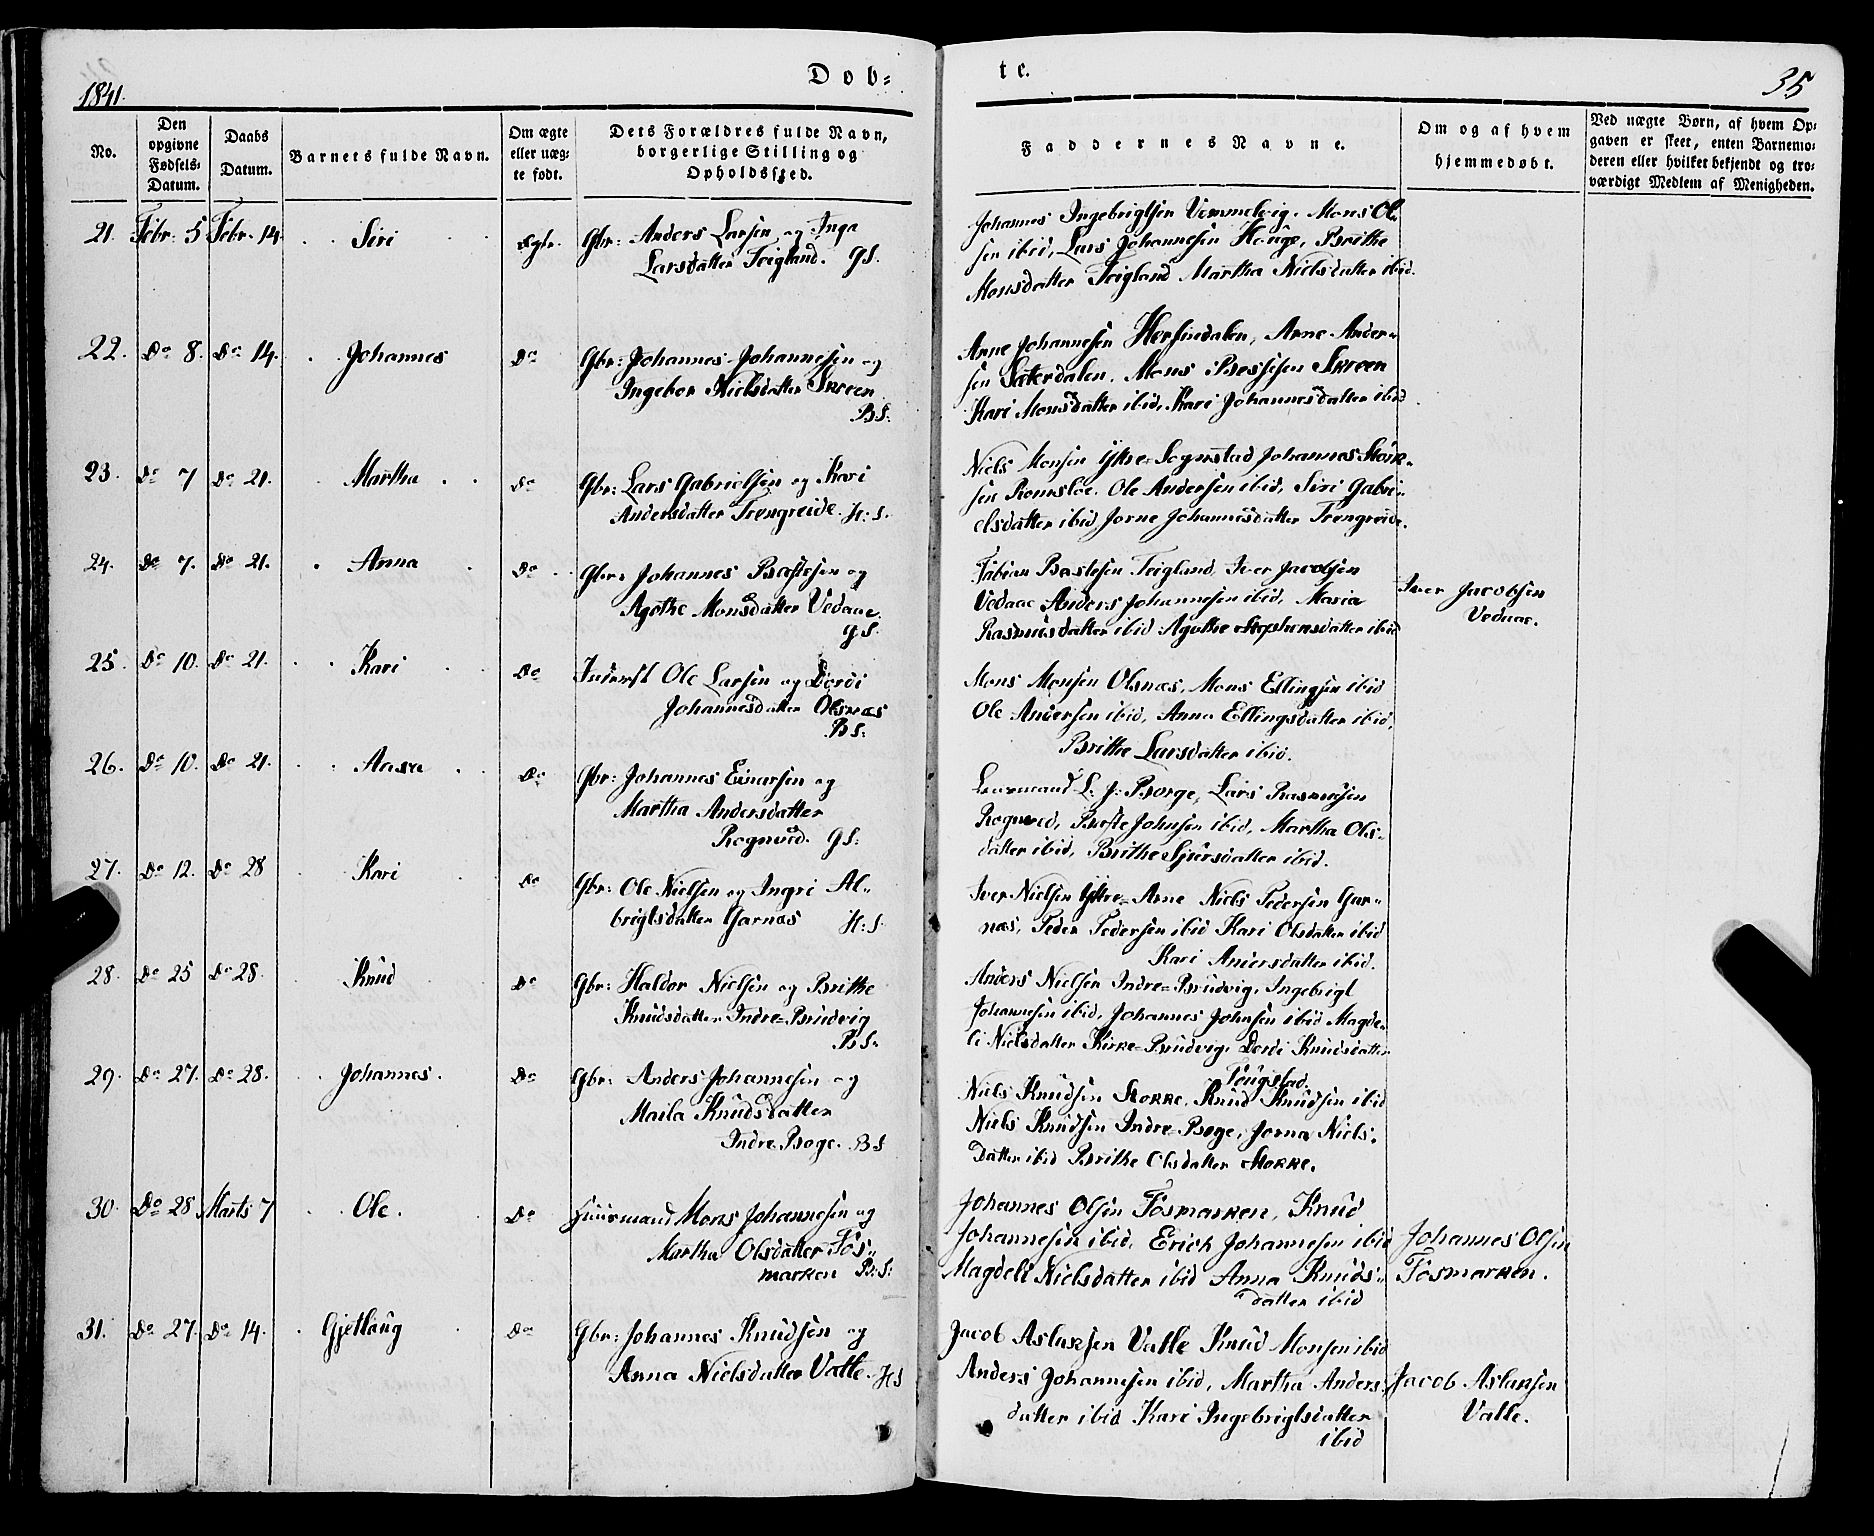 1841.
Døb-
te.
35
No.
Den opgivne Fødsels-Datum.
Daabs Datum.
Barnets fulde Navn.
Om ægte eller uæg-te født.
Dets Forældres fulde Navn, borgerlige Stilling og Opholdssted.
Faddernes Navne.
Om og af hvem hjemmedøbt.
Ved uægte Børn, af hvem Op-gaven er skeet, enten Barnemo-deren eller hvilket bekjendt og tro-værdigt Medlem af Menigheden.
21. Febr. 5 Febr. 14. Siri Ægte. Gbr: Anders Larsen og Inga
Larsdatter Teigland. GS.
Johannes Ingebrigtsen Vemmelvig. Mons Ol-
sen ibid, Lars Johannesen Houge, Brithe
Monsdatter Teigland Martha Nielsdatter ibid.
22. Do 8. Do 14. Johannes Do Gbr: Johannes Johannesen og
Ingebor Nielsdatter Skreen
BS:
Arne Johannesen Hersindalen, Arne Ander-
sen Säterdalen. Mons Børsesen Skreen
Kari Monsdatter ibid, Kari Johannesdatter ibid
23. Do 7 Do 21. Martha Do Gbr: Lars Gabrielsen og Kari
Andersdatter Trengreide. H:S.
Niels Monsen Ytre-Sognstad Johannes Stork-
sen Romsloe. Ole Andersen ibid, Siri Gabri-
elsdatter ibid, Jorne Johannesdatter Trengreide.
24. Do 7. Do 21. Anna Do Gbr: Johannes Børstesen og
Agathe Monsdatter Vedaae.
GS.
Fabian Børstesen Teigland, Iver Jacobsen
Vedaae Anders Johannesen ibid, Maria
Rasmusdatter ibid Agathe Stephensdatter ibid
Iver Jacobsen
Vedaae.
25. Do 10. Do 21. Kari Do Inderst Ole Larsen og Dordi
Johannesdatter Olsnæs
BS:
Mons Monsen Olsnæs, Mons Ellingsen ibid
Ole Andersen ibid, Anna Ellingsdatter ibid,
Brithe Larsdatter ibid.
26. Do 10. Do 21. Aasa Do Gbr: Johannes Einarsen og
Martha Andersdatter
Rognved. GS:
L: J: Borge, Lars Rasmusen
Rognved, Børste Johnsen ibid, Martha Ols-
datter ibid, Brithe Sjursdatter ibid.
27. Do 12. Do 28 Kari Do Gbr: Ole Nielsen og Ingri Al-
brigtsdatter Garnæs H:S.
Iver Nielsen Yttre-Arne Niels Pedersen Gar-
næs, Peder Pedersen ibid Kari Olsdatter ibid
Kari Andersdatter ibid.
28. Do 25 Do 28. Knud Do Gbr: Haldor Nielsen og Brithe
Knudsdatter Indre-Brudvig
BS.
Anders Nielsen Indre-Brudvig, Ingebrigt
Johannesen ibid, Johannes Johnsen ibid Magde-
li Nielsdatter Kirke-Brudvig, Dordi Knudsdatter
29. Do 27. Do 28. Johannes. Do Gbr: Anders Johannesen og
Maila Knudsdatter
Indre Boge. BS
Niels Knudsen Storke, Knud Knudsen ibid
Niels Knudsen Indre-Boge, Jorna Niels-
datter ibid Brithe Olsdatter Storke.
30. Do 28 Marts 7 Ole. Do Huusmand Mons Johannesen og
Martha Olsdatter Fos-
marken B:S:
Johannes Olsen Fosmarken, Knud
Johannesen ibid, Erich Johannesen ibid
Magdeli Nielsdatter ibid Anna Knuds-
datter ibid
Johannes Olsen
Fosmarken.
31. Do 27. Do 14. Gjetlaug Do Gbr: Johannes Knudsen og
Anna Nielsdatter Valle. HS
Jacob Aslaksen Valle Knud Monsen ibid
Anders Johannesen ibid, Martha Anders-
datter ibid Kari Ingebrigtsdatter
ibid
Jacob Aslaksen
Valle.